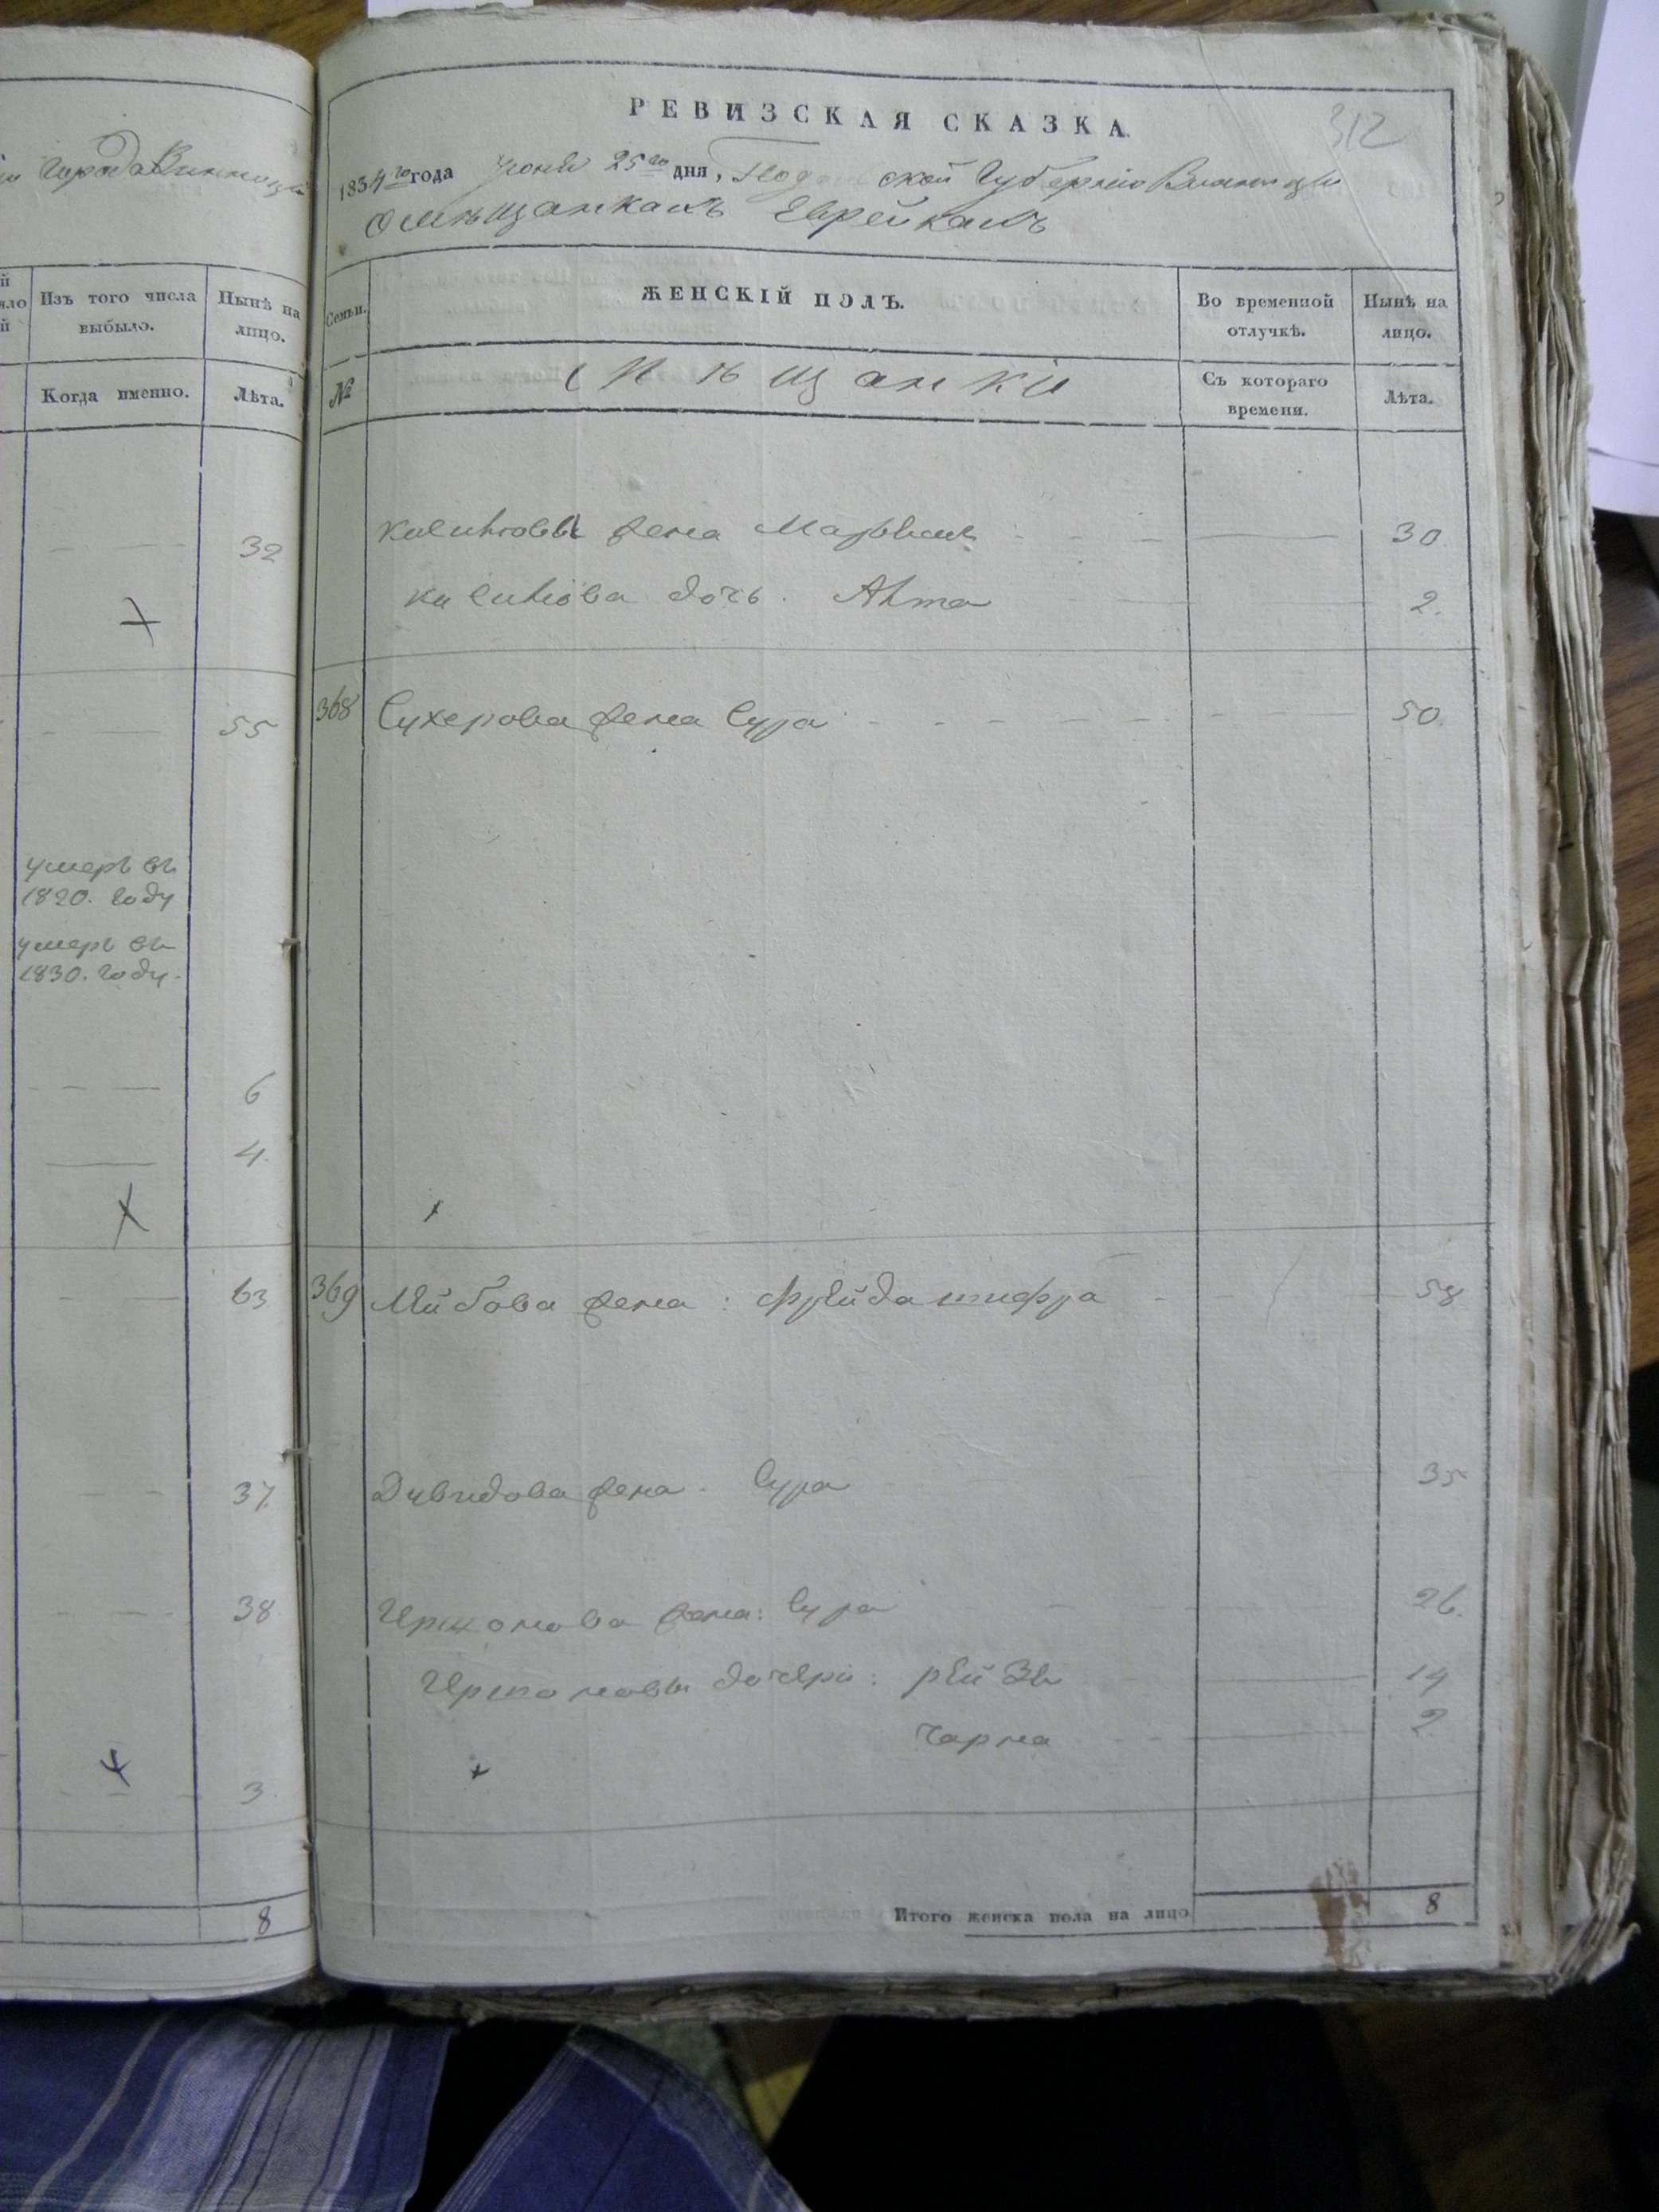 Города Винницы
Изъ того числа выбыло.
Нынѣ на лицо.
Когда именно.
Лѣта.
32
55
умеръ въ
1820. году
умеръ въ
1830. году.
6
4.
63
37
38
3
8
312
РЕВИЗСКАЯ СКАЗКА.
1834го года Іюня 25го дня, Подольской Губерніи Винницы
О мѣщанкахъ Еврейкахъ
Семьи.
ЖЕНСКІЙ ПОЛЪ.
Во временной отлучкѣ.
Нынѣ на лицо.
№
Мѣщанки
Съ котораго времени.
Лѣта.
жена 30.
дочь. 2.
368 Сухерова жена Сура 50.
369 Лейбова жена: Фрейда шифра 58
Давидова жена. Сура 35
жена: Сура 26.
дочери: рейзя 14
Чарна 2
Итого женска пола на лицо 8